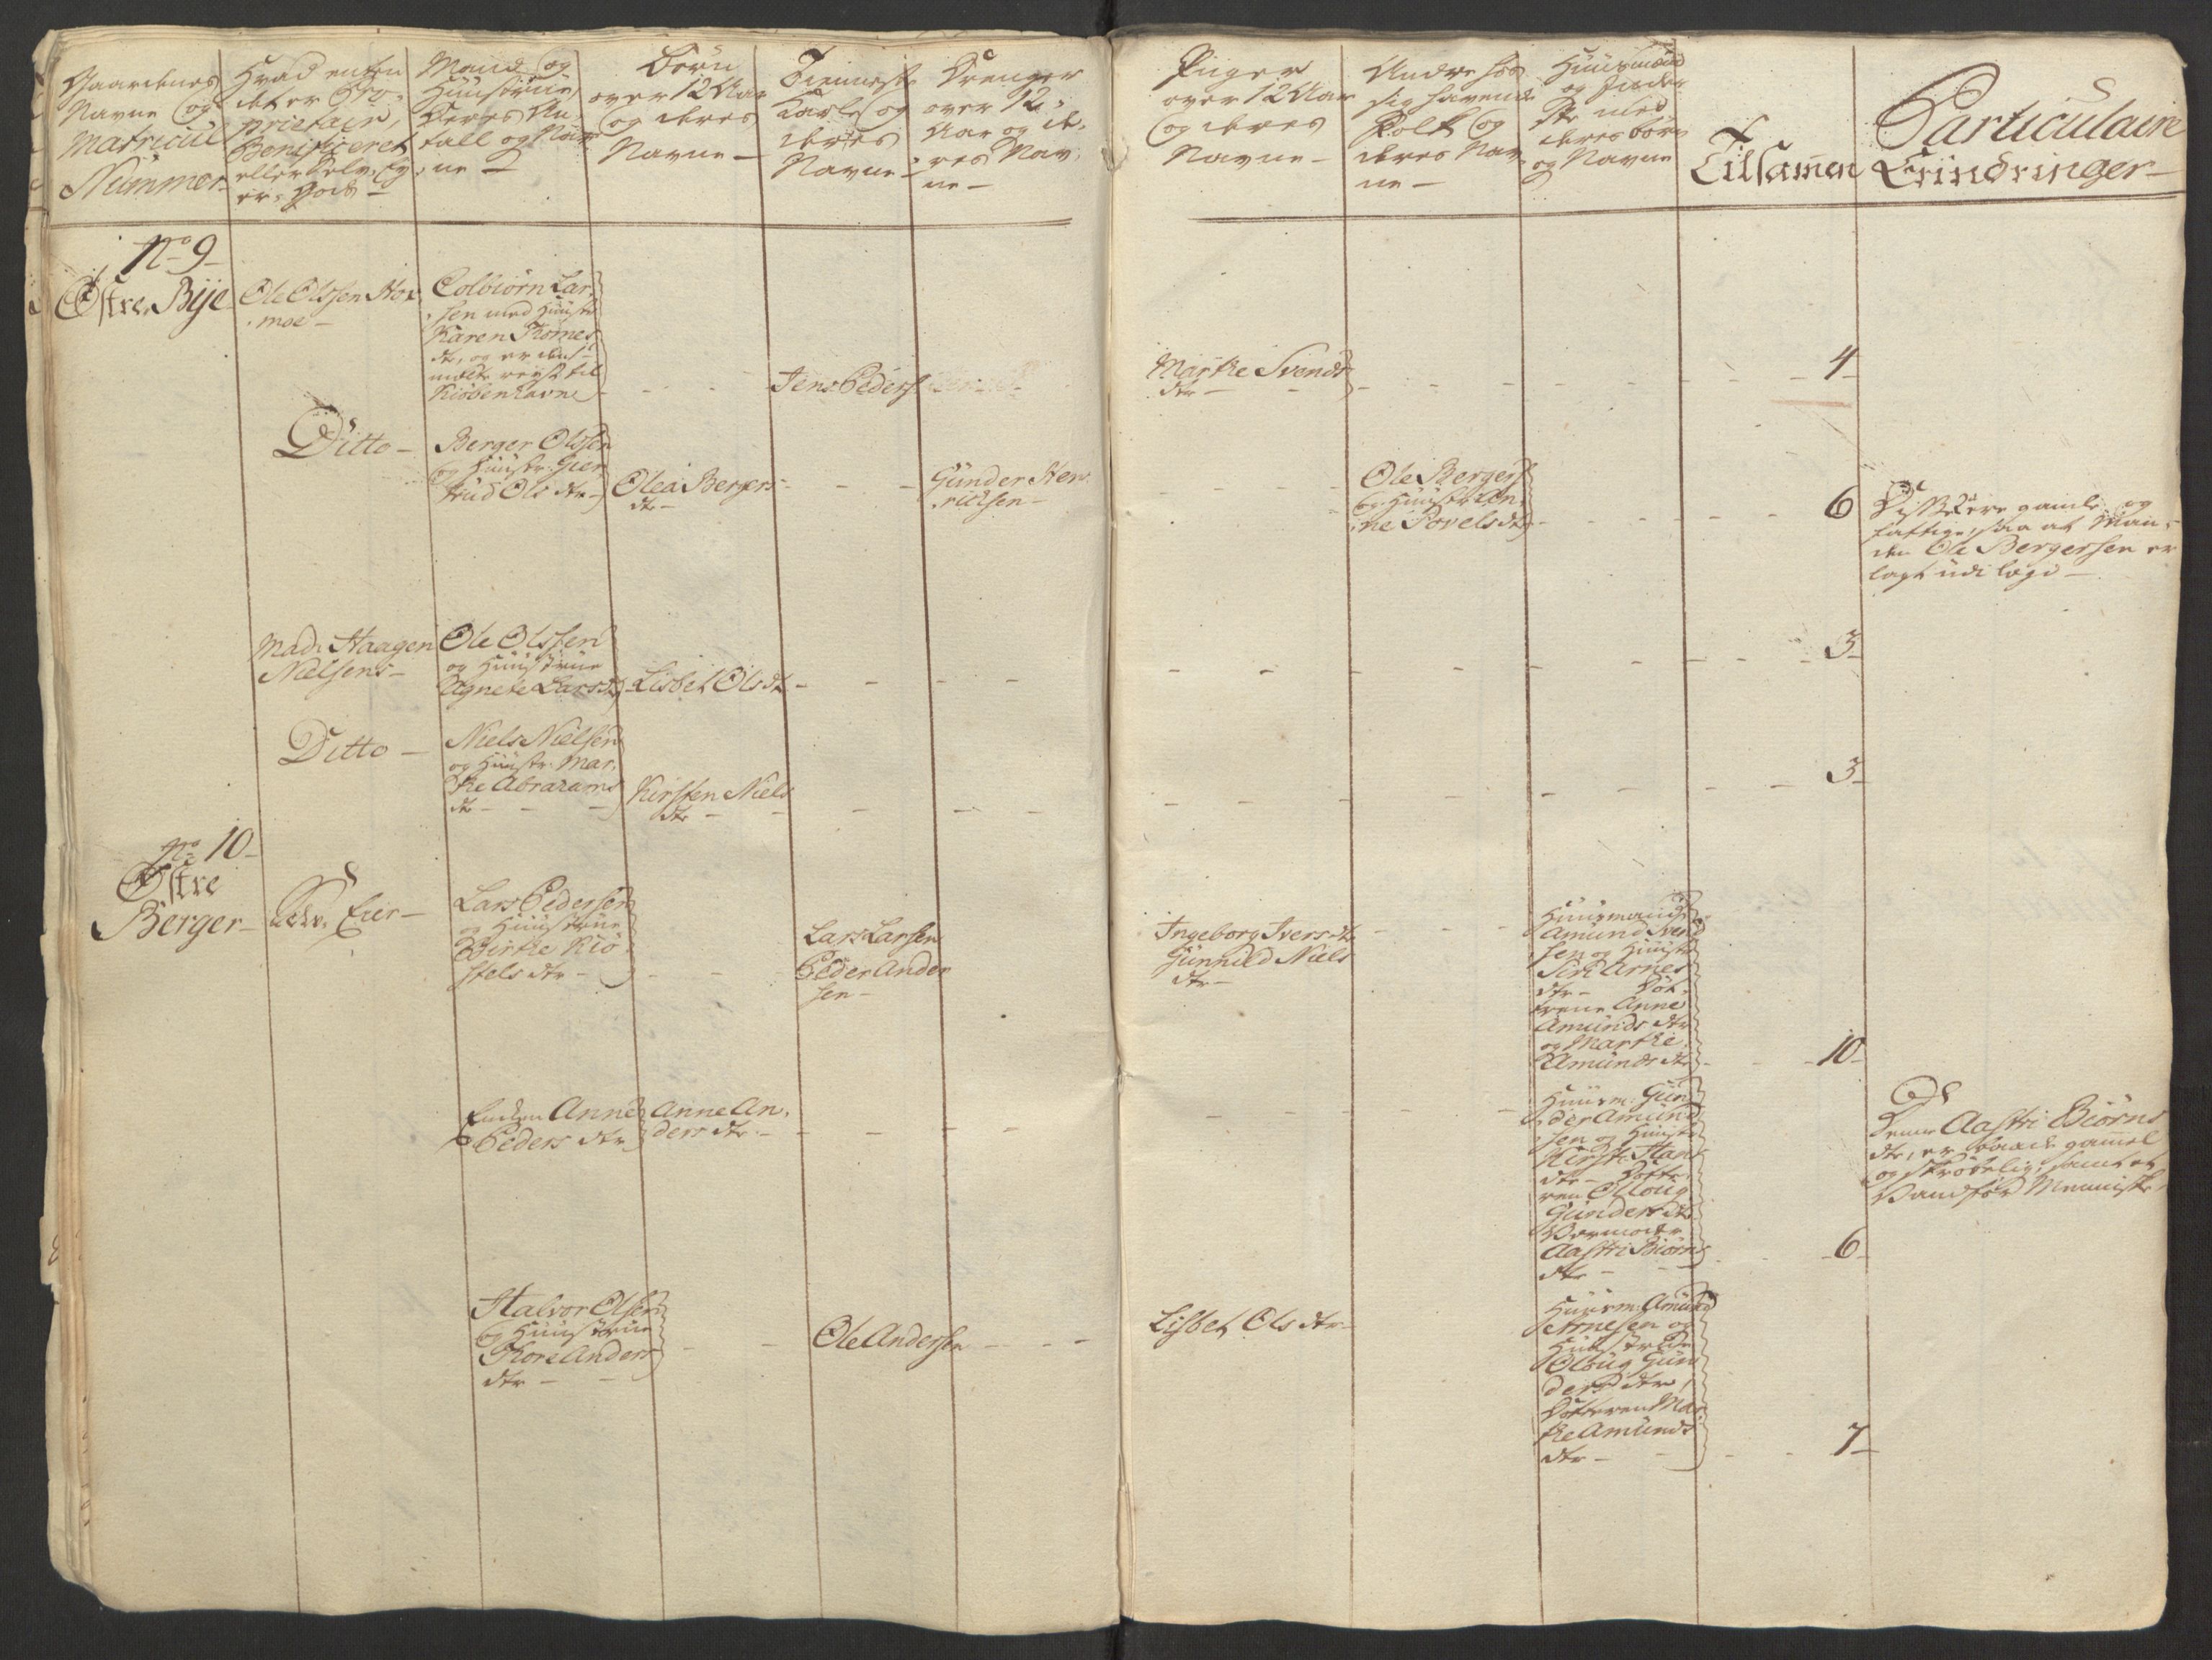 Gaardenes
Navne og
Matricul
Nummer
Hvad enten
det er Pro-
prietair,
Beneficeret
eller Selv Ey-
er Gods
Mand og
Huustrue,
Deres An-
tall og Nav-
ne
Børn
over 12 Aar
og deres
Navne
Tienneste
Karle og
deres
Navne
Drenger
over 12
Aar og de-
res Nav-
ne
Piger
over 12 Aar
og deres
Navne
Andre hos
sig havende
Folk og
deres Nav-
ne
Huusmænd
og Inder-
ster med
deres børn
og Navne
Tilsamen
Particulaire
Erindringer
No 9
Østre Bije
Ole Olssen
moe
Colbiørn Lar-
sen med Huustr
Karen Thomes
dtr, og er
reyst til
Kiøbenhavn
Jens Peders
Marthe Svends
dtr
4
Ditto
Berger Olssen
og Huustr. Gier-
trud Ols dtr
Olea Bergers
dtr
Gunder Hen-
richsen
Ole Bergers
og Huustr
ne Povels dtr
6
Disse ere gamle og
fattige, saa at Man-
den Ole Bergersen er
lagt udi lægd
Mad. Haagen
Nielsens
Ole Olssen
og Huustrue
Agnete Lars dtr
Lisbet Ols dtr
3
Ditto
Niels Nielsen
og Huustr. Mar-
the Abrahams
dtr
Kirsten Niels
dtr
3
No 10
Østre
Berger
Selv Eier
Lars Pedersen
og Huustrue
Birthe Kiø-
stels dtr
Lars Larsen
Peder Ander
sen
Ingeborg Ivers dtr
Gunnild Niels
dtr
Huusmand
Amund Svend
sen og Huustr
Siri Arnes
dtr Døt-
trene Anne
Amunds dtr
og Marthe
Amunds dtr
10
Enken Anne
Peders dtr
Anne An-
ders dtr
Huusm: Gun-
der Amund
sen og Huustr
Kirsti Hans
dtr Datte-
ren Olloug
Gunders dtr
Aastri Biørns
dtr
6
Denne Aastri Biørns
dtr, er baade gammel
og skrøbelig, samt et
Vandfør Menniske
Halvor Olsen
og Huustrue
Thore Anders
dtr
Ole Andersen
Lisbet Ols dtr
Huusm: Amund
Arnesen og
Huustrue
Oloug Gun
ders dtr,
Datteren Mar-
the Amunds
dtr
7